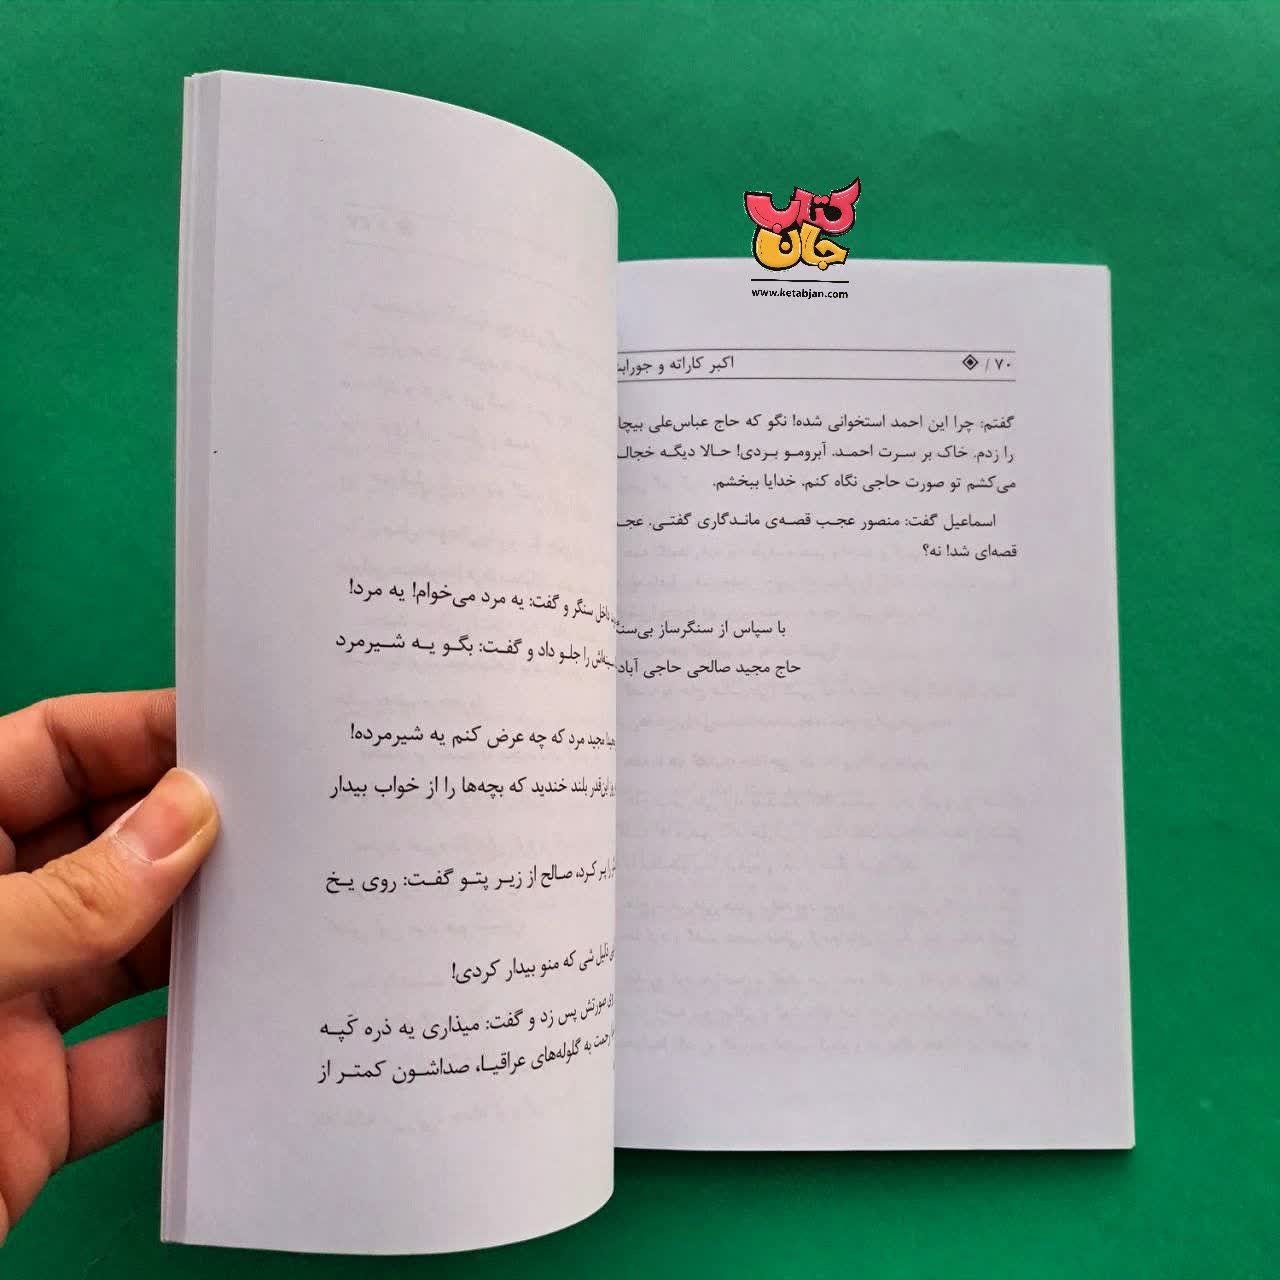 کتاب
جان
www.ketabjan.com
۷۰ / اکبر کاراته و
گفتم: چرا این احمد استخوانی شده! نگو که حاج عباس‌علی
را زدم. خاک بر سرت احمد. آبرومو بردی! حالا دیگه
می‌کشم تو صورت حاجی نگاه کنم. خدایا ببخشم.
اسماعیل گفت: منصور عجب قصه‌ی ماندگاری گفتی.
قصه‌ای شد! نه؟
با سپاس از سنگرساز
حاج مجید صالحی حاجی
داخل سنگر و گفت: یه مرد می‌خوام! یه مرد!
را جلو داد و گفت: بگو یه شیرمرد
مجید مرد که چه عرض کنم یه شیرمرده!
این‌قدر بلند خندید که بچه‌ها را از خواب بیدار
را پر کرد، صالح از زیر پتو گفت: روی یخ
ذلیل شی که منو بیدار کردی!
صورتش پس زد و گفت: میذاری یه ذره کَپه
رحمت به گلوله‌های عراقیا، صداشون کمتر از